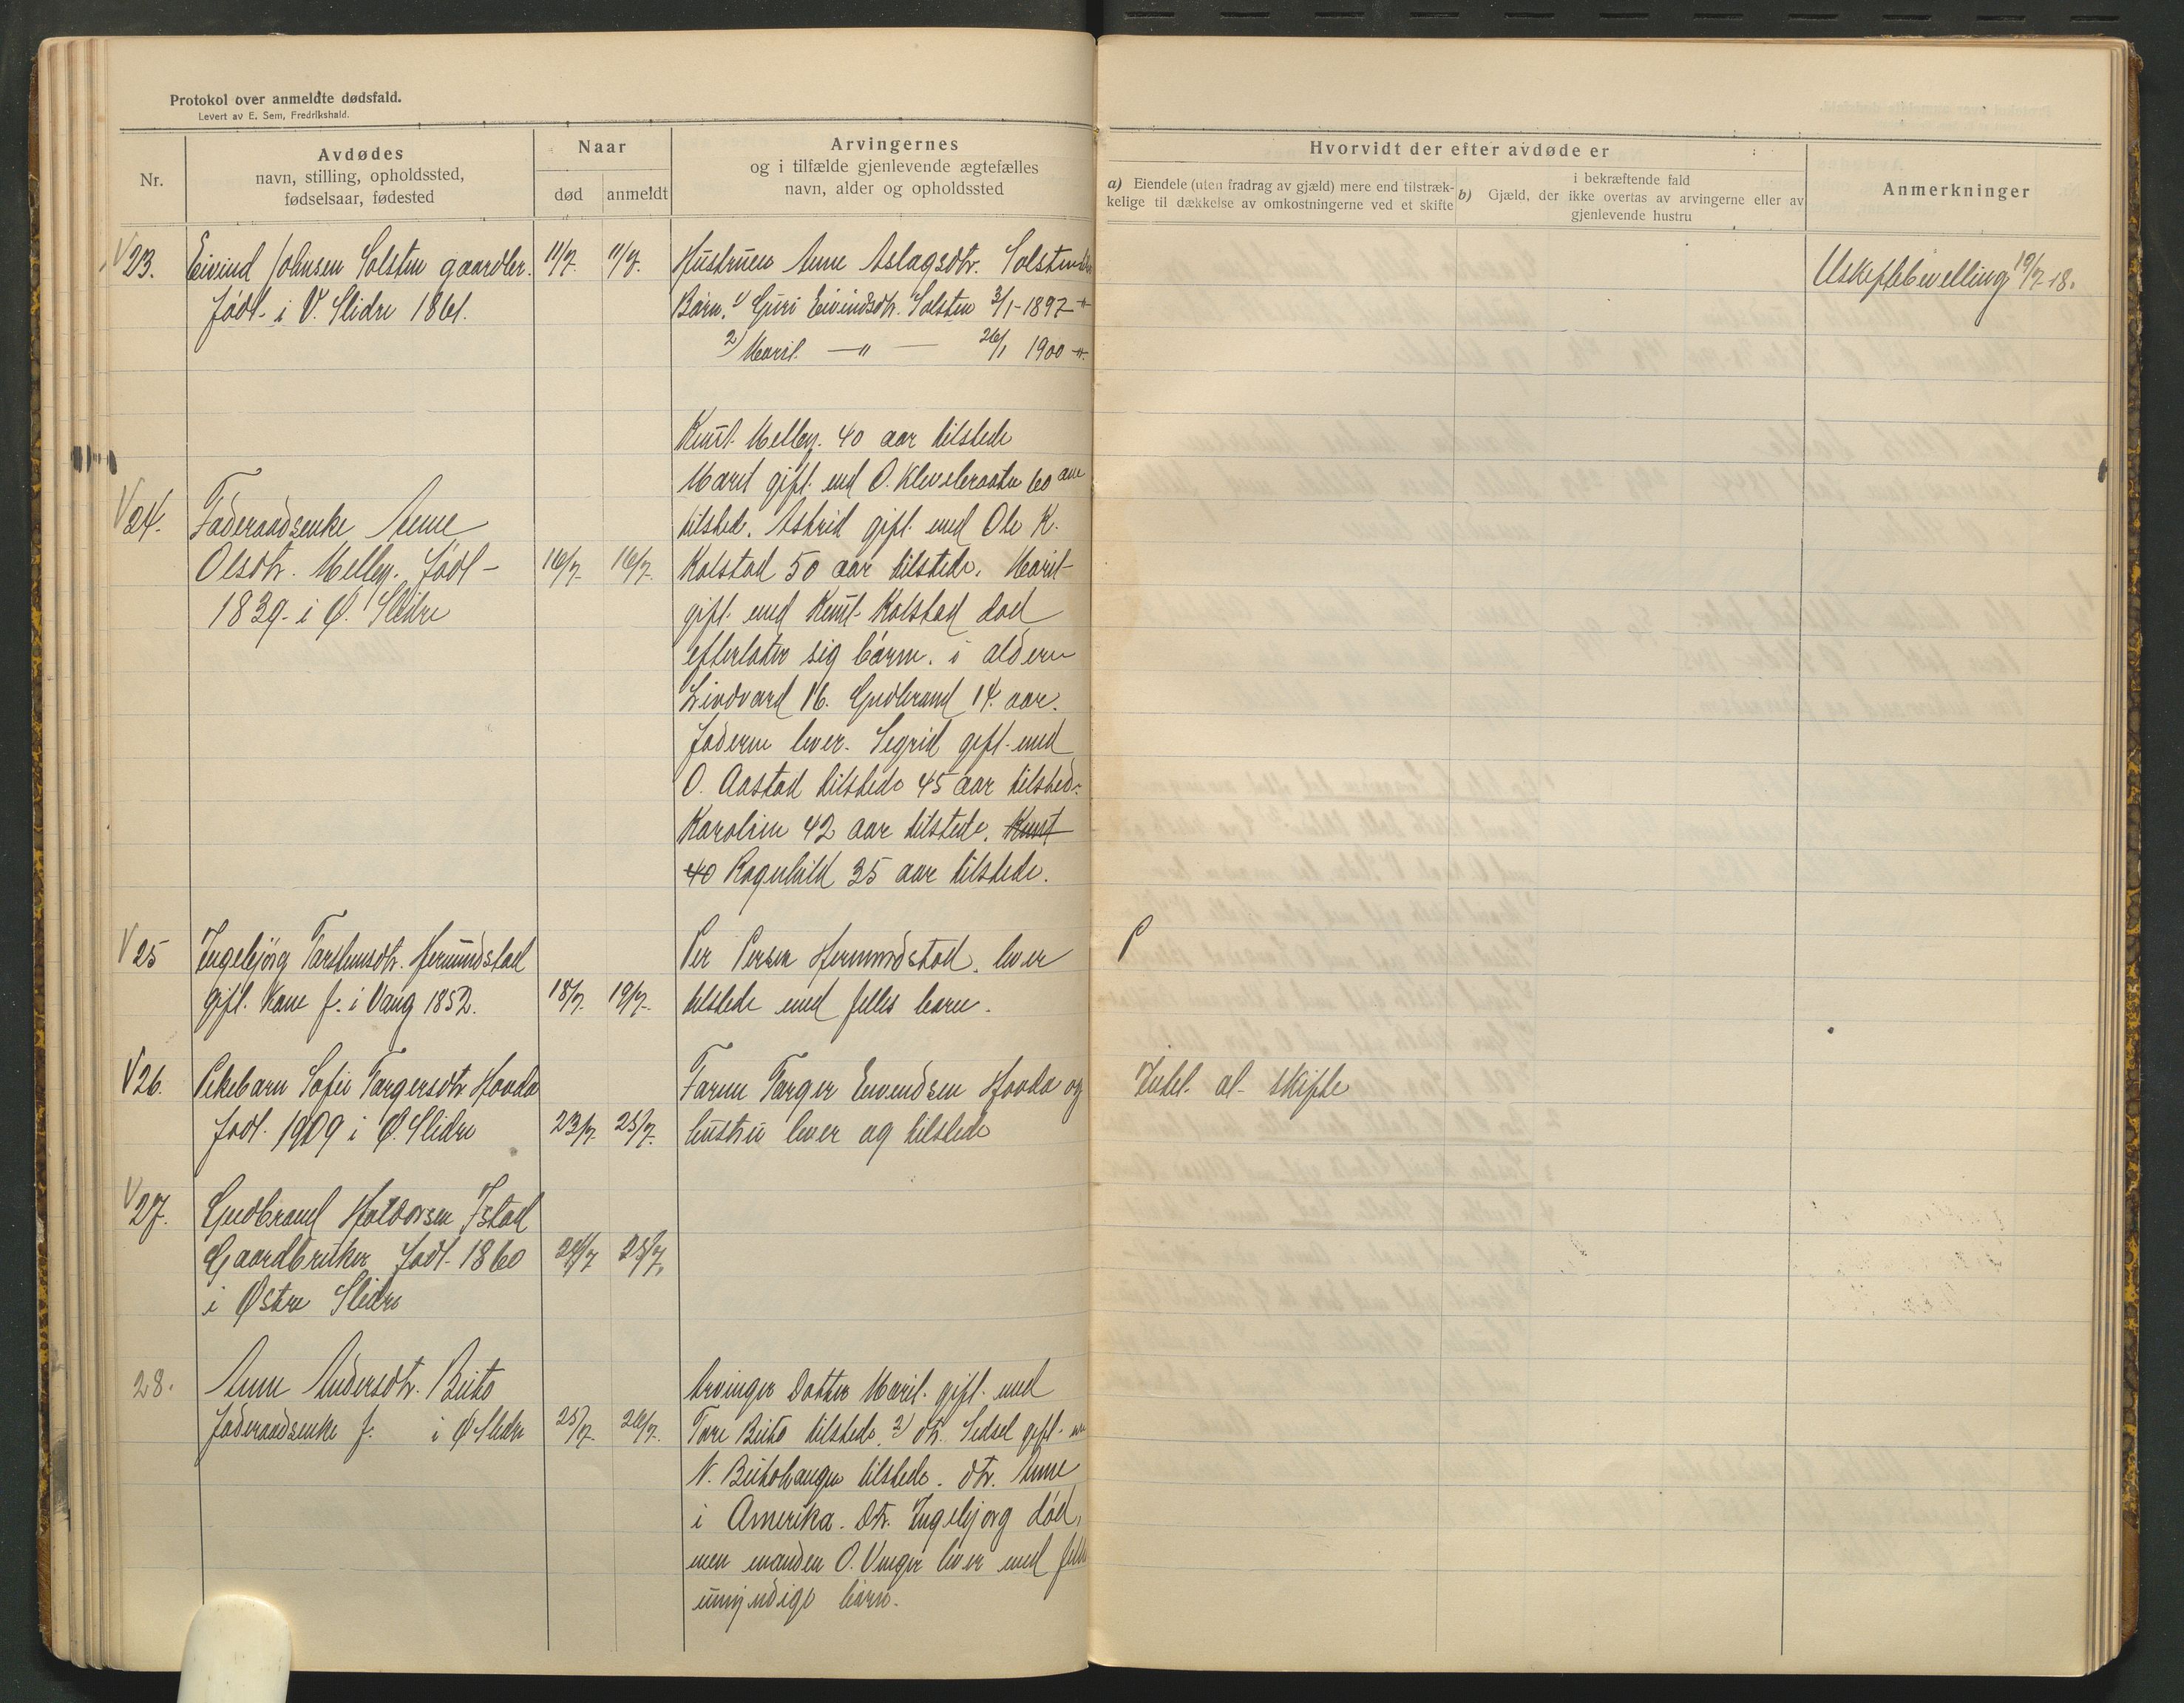 Protokol over anmeldte dødsfald.
Levert av E. Sem, Fredrikshald.
Nr.
Avdødes
navn, stilling, opholdssted,
fødselsaar, fødested
Naar
død
anmeldt
Arvingernes
og i tilfælde gjenlevende ægtefælles
navn, alder og opholdssted
Hvorvidt der efter avdøde er
a) Eiendele (uten fradrag av gjæld) mere end tilstræk-
kelige til dækkelse av omkostningerne ved et skifte
i bekræftende fald
b) Gjæld, der ikke overtas av arvingerne eller av
gjenlevende hustru
Anmerkninger
V 23.
Eivind Johnsen Solsten gaardbr.
født i V. Slidre 1861.
11/7. 11/7.
Hustruen Anne Aslagsdtr. Solsten
Barn. 1) Guri Eivindsdtr. Solsten 3/1-1897 "
2) Marit — " — 26/1 1900 "
Uskiftebevelling 19/7-18.
V 24.
Føderaadsenke Anne
Olsdtr. Melby. født
1839 i Ø. Slidre
16/7. 16/7.
Knut Melby. 40 aar tilstede
Marit gift med O. Klevebraaten 60 aar
tilstede. Astrid gift med Ole K.
Kolstad 50 aar tilstede. Marit
gift med Knut Kolstad død
efterlater sig barn. i alderen
Lindvard 16. Gudbrand 14. aar.
faderen lever. Sigrid gift med
O. Aastad tilstede 45 aar tilstede
Karoline 42 aar tilstede. Knut
40 Ragnhild 35 aar tilstede.
V 25
Ingebjørg Torstensdtr. Hermundstad
gift. Kone f. i Vang 1852.
18/7. 19/7.
Per Persen Hermundstad. lever
tilstede med felles barn.
V 26.
Pikebarn Sofie Torgersdtr Hovda
født. 1909 i Ø. Slidre
23/7. 25/7.
Faren Torger Eivendsen Hovda og
hustru lever og tilstede
Intet at skifte
V 27.
Gudbrand Haldorsen Istad
Gaardbruker født 1860
i Østre Slidre
24/7 25/7.
28.
Anne Andersdtr. Beito
føderaadsenke f. i Ø Slidre
25/7. 26/7.
Arvinger Datter Marit gift med
Tore Beito tilstede. 2) dtr. Sidsel gift
N. Beitohaugen tilstede. dtr. Anne
i Amerika. Dtr. Ingebjørg død,
men manden O. Vinger lever med felles
umyndige barn.